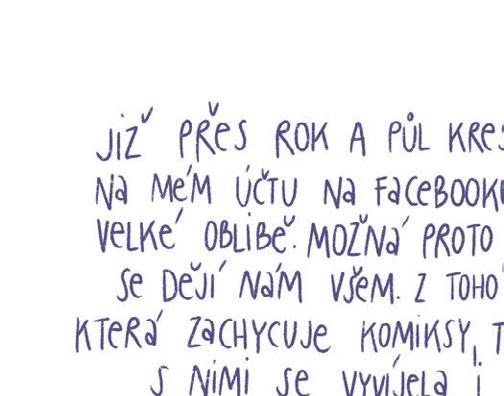 Již přes rok a půl kres
na mém účtu na facebooku
velké oblibě. Možná proto
se dějí nám všem. Z toho
která zachycuje komiksy, t
s nimi se vyvíjela i